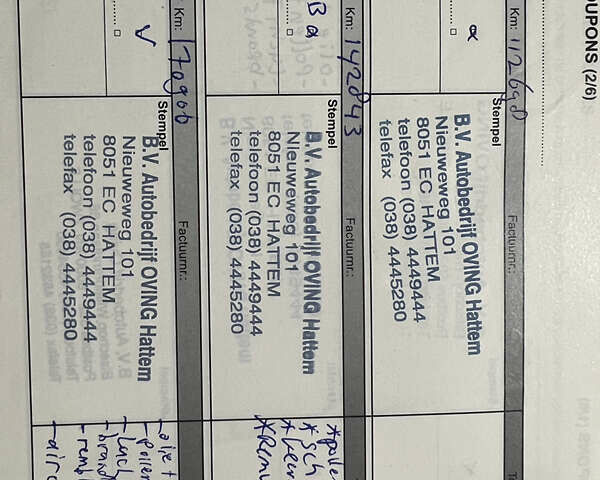 OUPONS (2/6)
Km: 112690
Factuurnr.:
Stempel
B.V. Autobedrijf OVING Hattem
Nieuweweg 101
8051 EC HATTEM
telefoon (038) 4449444
telefax (038) 4445280
Km: 142843
Factuurnr.:
B
Stempel
B.V. Autobedrijf OVING Hattem
Nieuweweg 101
8051 EC HATTEM
telefoon (038) 4449444
telefax (038) 4445280
*polle
*sch
Km: 170906
Factuurnr.:
Stempel
B.V. Autobedrijf OVING Hattem
Nieuweweg 101
8051 EC HATTEM
telefoon (038) 4449444
telefax (038) 4445280
-olie +
-pollen
-Luch
-brand
-rembl
-airc